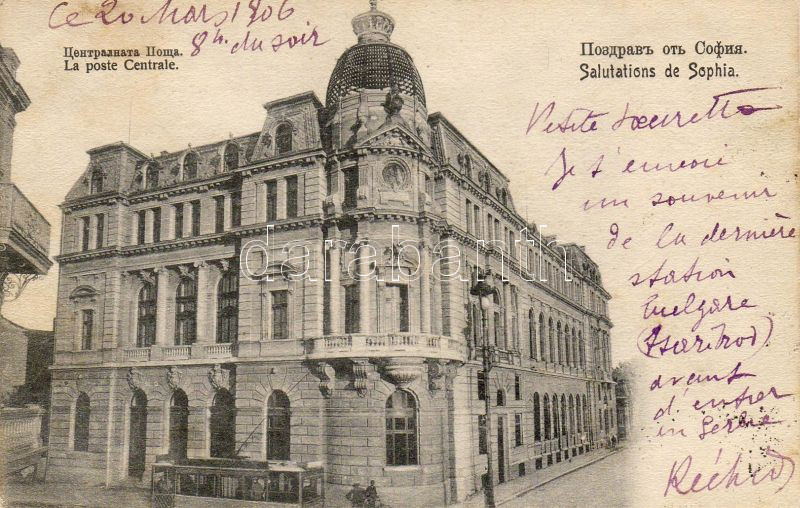 Ce 20 Mars 1906
8h. du soir
Централната Поща.
La poste Centrale.
Поздравъ отъ София.
Salutations de Sophia.
Petite
Je t'envoi
un souvenir
de la dernière
station
bulgare
(Tsaribrod)
avant
d'entrer
en Serbie
darabanth